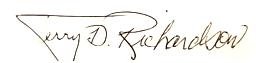 Terry D. Richardson